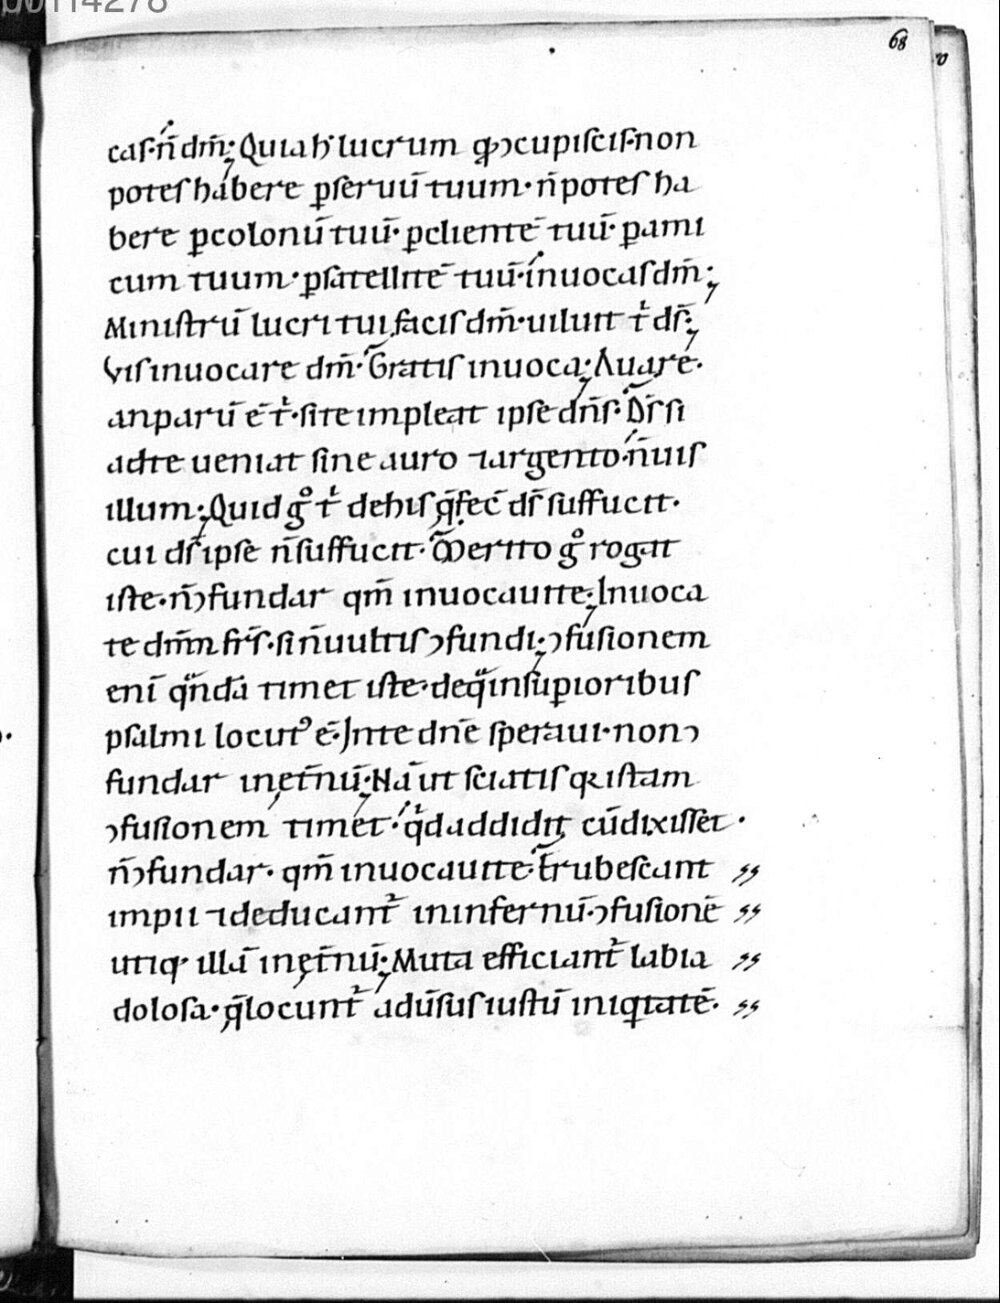 68
caſ·n̄ dm̄; Quia h̓ lucrum qͻcupiſciſ·non
poteſ habere ꝑſeruū tuum·n̄ poteſ ha
bere ꝑcolonū tuū·ꝑclientē tuū·ꝑami
cum tuum·ꝑſatellitē tuū·inuocaſ dm̄;
Miniſtrū lucri tui faciſ dm̄·uiluit t̓ dſ̄;
Viſ inuocare dm̄·Gratiſ inuoca; Auare·
an parū ē t̓·ſi te impleat ipſe dn̄ſ·Dſ̄ ſi
ad te ueniat ſine auro ⁊argento·n̄ uiſ
illum; Quid gͦ t̓ dehiſ q̄ fec̄ dſ̄ ſufficit·
cui dſ̄ ipſe n̄ ſufficit·Merito gͦ rogat
iſte·n̄ ͻfundar qm̄ inuocaui te; Inuoca
te dm̄m fr̄ſ·ſi n̄ uultiſ ͻfundi; ͻfuſionem
enī qͣndā timet iſte·de qͣ in ſuꝑioribuſ
pſalmi locutꝰ ē·In te dn̄e ſperaui·non ͻ
fundar in ęt̄nū; Nā ut ſciatiſ q̇a iſtam
ͻfuſionem timet·qͥd addidit cū dixiſſet·
n̄ ͻfundar·qm̄ inuocaui te·Erubeſcant
impii ⁊deducant᷑ in infernū·ͻfuſionē
utiq· illā in ęt̄nū; Muta efficiant᷑ labia
doloſa·q̄ locunt᷑ aduſ̄uſ iuſtū iniqitatē·